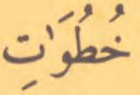 خُطُوَٰتِ